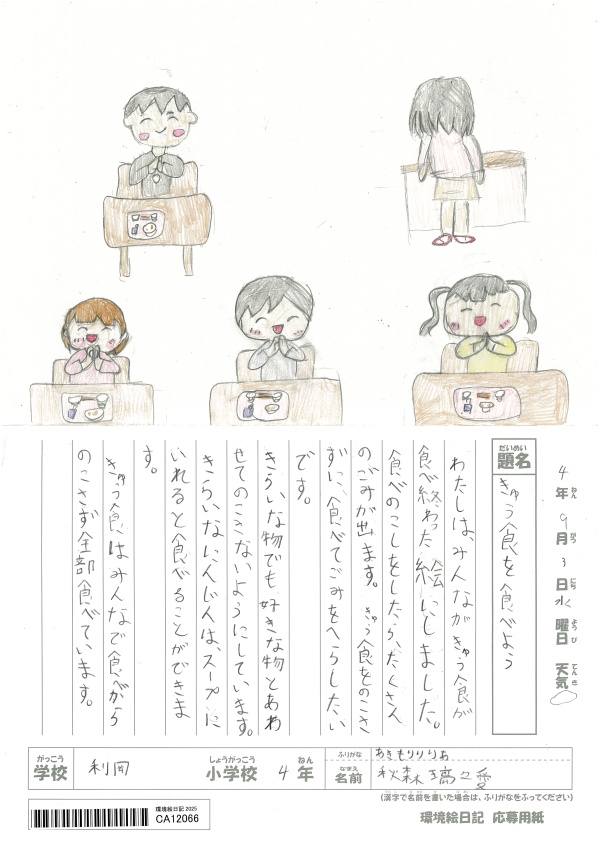 4年ねん9月がつ3日にち水曜日ようび 天気てんき
題名だいめい きゅう食を食べよう
わたしは、みんながきゅう食が
食べ終わった絵にしました。
食べのこしをしたら、たくさん
のごみが出ます。きゅう食をのこさ
ずに、食べてごみをへらしたい
です。
きらいな物でも好きな物とあわ
せてのこさないようにしています。
きらいなにんじんは、スープに
いれると食べることができま
す。
きゅう食はみんなで食べがら
のこさず全部食べています。
がっこう 学校 利岡 しょうがっこう 小学校 4年ねん
ふりがな あきもりりりあ
なまえ 名前 秋森璃々愛
(漢字で名前を書いた場合は、ふりがなをふってください)
環境絵日記2025
CA12066
環境絵日記 応募用紙